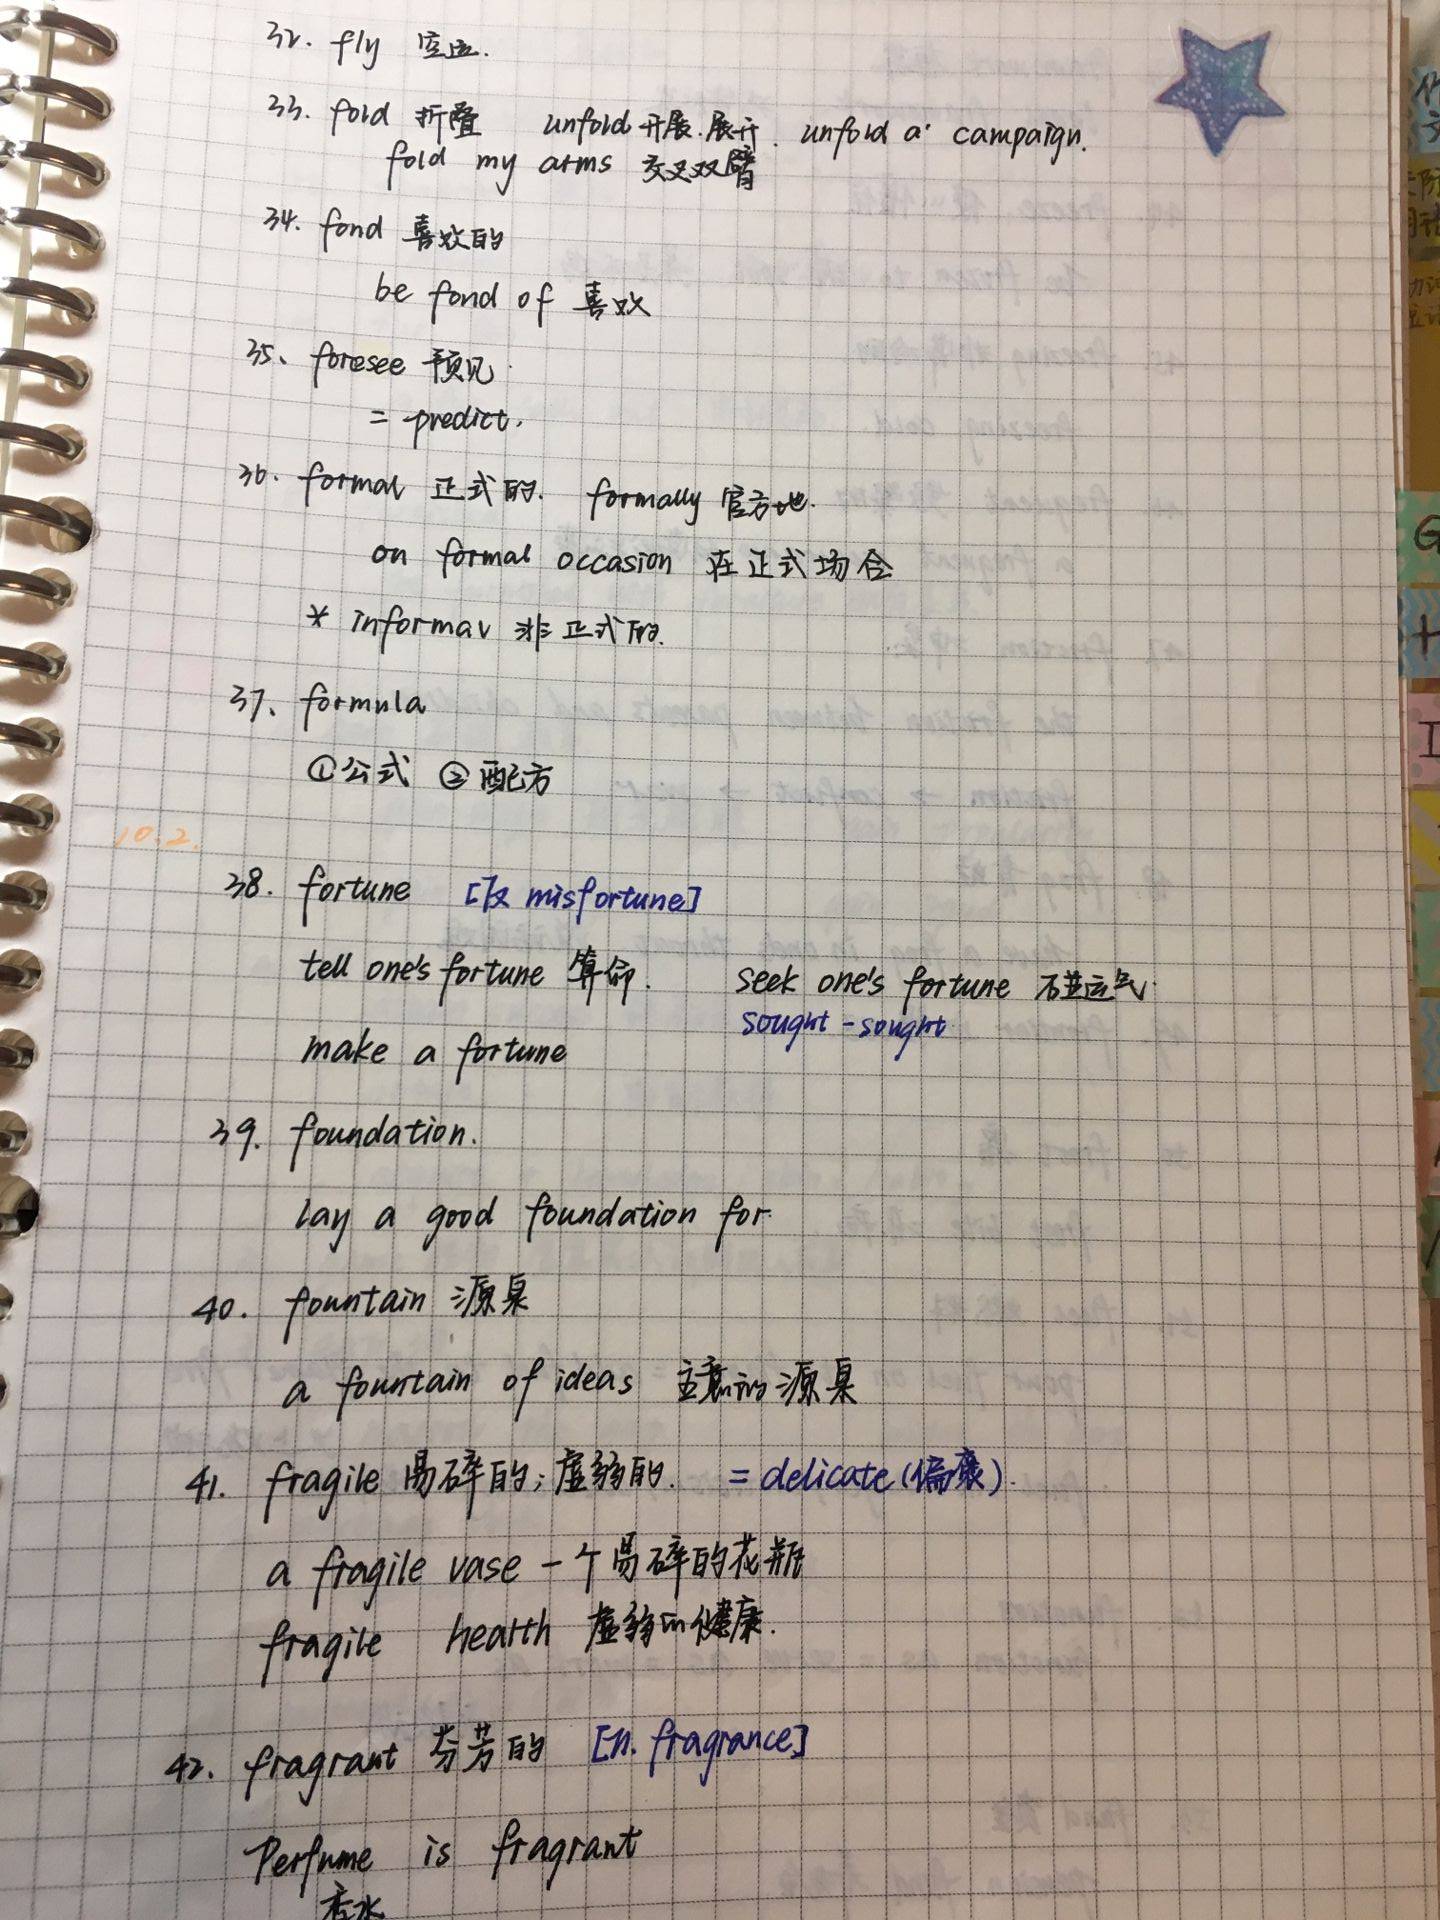 32. fly 空运.
33. fold 折叠 unfold 开展.展开. unfold a campaign.
fold my arms 交叉双臂
34. fond 喜欢的
be fond of 喜欢
35、foresee 预见.
= predict.
36. formal 正式的. formally 官方地.
on formal occasion 在正式场合
* informal 非正式的.
37、formula
①公式 ②配方
10.2.
38. fortune [反 misfortune]
tell one's fortune 算命. seek one's fortune 碰运气.
sought - sought
make a fortune
39. foundation.
lay a good foundation for.
40. fountain 源泉
a fountain of ideas 主意的源泉
41. fragile 易碎的;虚弱的. = delicate (偏褒).
a fragile vase 一个易碎的花瓶
fragile health 虚弱的健康.
42. fragrant 芬芳的 [n. fragrance]
Perfume is fragrant
香水
G
H
I